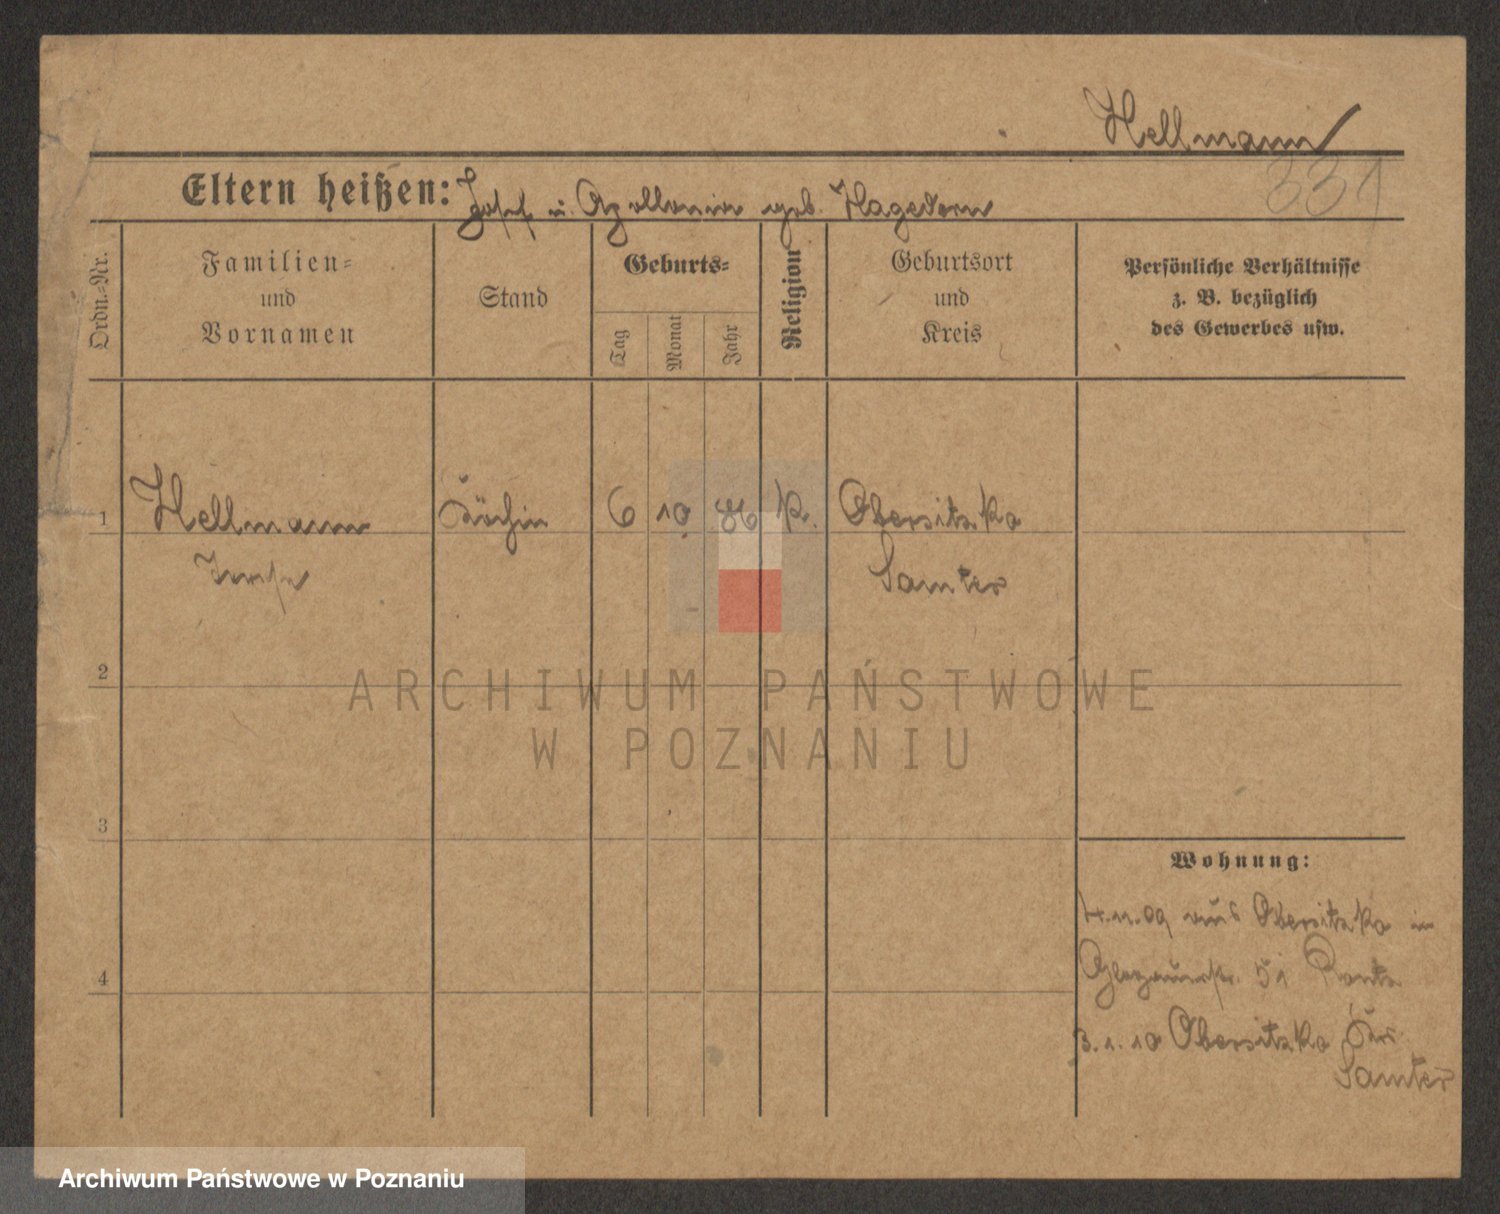 Hellmann
331
Eltern heißen: Josef u. Apollonia geb. Hagedorn
Ordn.-Nr.
Familien-
und
Vornamen
Stand
Geburts-
Tag
Monat
Jahr
Religion
Geburtsort
und
Kreis
Persönliche Verhältnisse
z. B. bezüglich
des Gewerbes usw.
1 Hellmann Köchin 6 10 86 k. Obersitzko
Samter
2
ARCHIWUM PAŃSTWOWE
W POZNANIU
3
Wohnung:
4.11.09 aus Obersitzko in
Glogauerstr. 51
4
3.1.10 Obersitzko Krs.
Samter
Archiwum Państwowe w Poznaniu